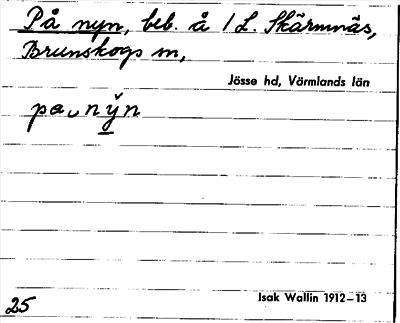 På nyn, beb. å 1 L. Skärmnäs,
Brunskogs sn,
Jösse hd, Värmlands län
pa ᴗ ny̌n
Isak Wallin 1912–13
25